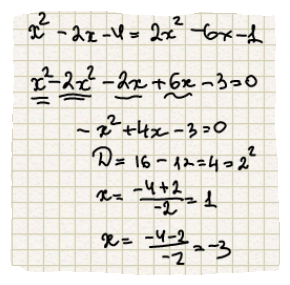 x² - 2x - 4 = 2x² - 6x - 1
x² - 2x² - 2x + 6x - 3 = 0
- x² + 4x - 3 = 0
D = 16 - 12 = 4 = 2²
x = (-4+2)/(-2) = 1
x = (-4-2)/(-2) = -3